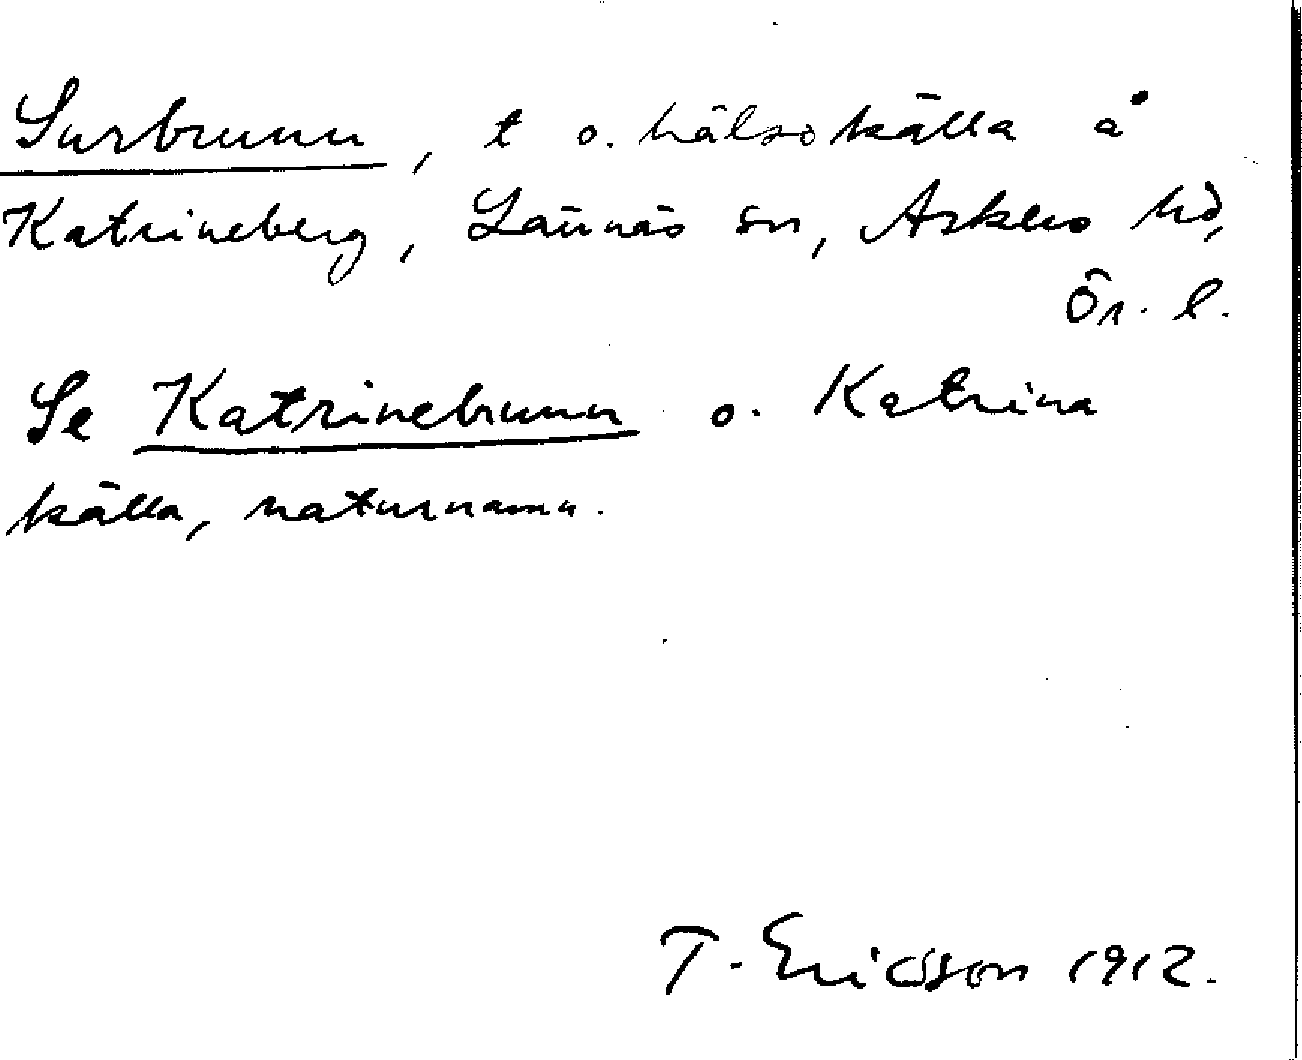 Surbrunn, t o. hälsokälla å
Katrineberg, Lännäs sn, Askers hd,
Ör. l.
Se Katrinebrunn o. Katrina
källa, naturnamn.
T. Ericsson 1912.